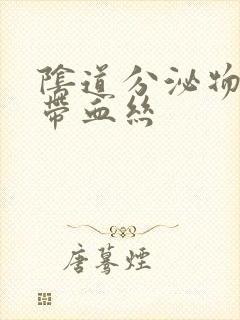 陰道分泌物
帶血絲
唐驀煙